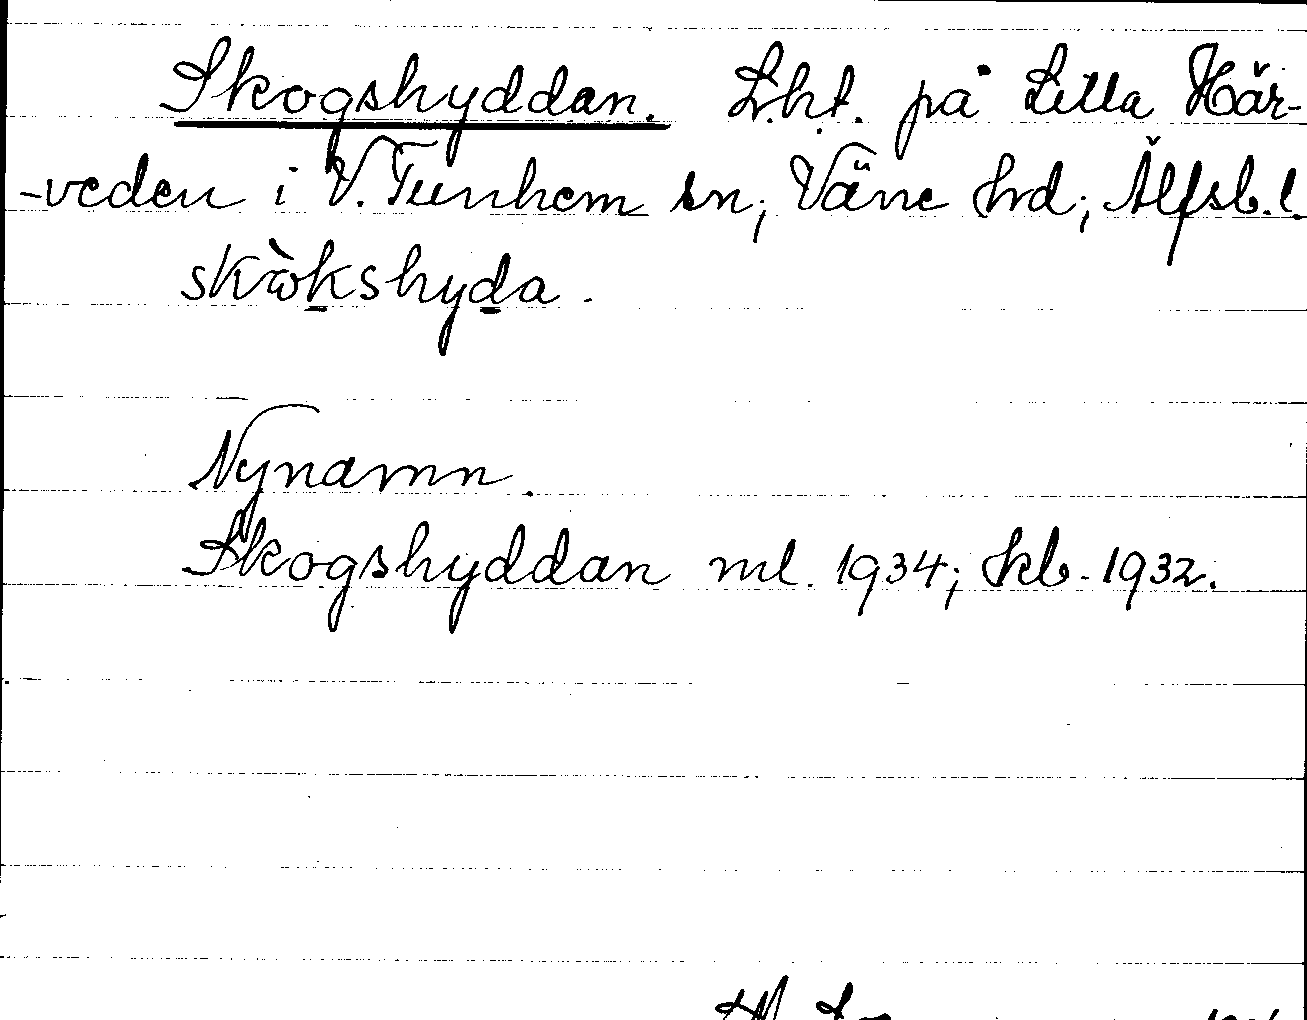 Skogshyddan. L.h.t. på Lilla Här-
-veden i V. Tunhem sn, Väne hd, Älfsb. l.
skòkshyda.
Nynamn.
Skogshyddan ml. 1934; kb. 1932.